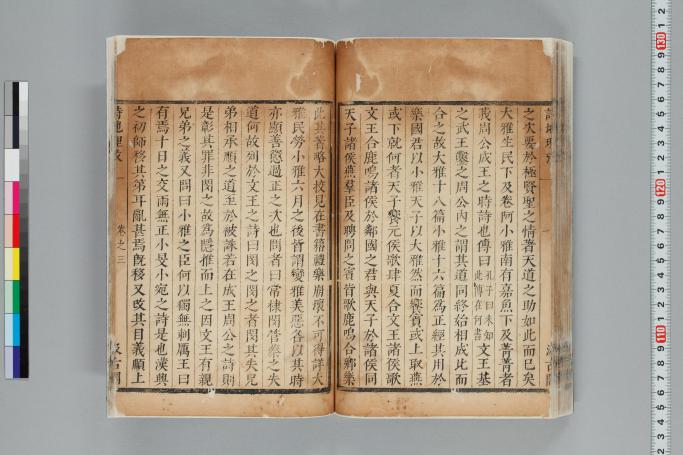 之次要於極賢聖之情著天道之助如此而已矣
大雅生民下及卷阿小雅南有嘉魚下及菁菁者
莪周公成王之時詩也傳曰孔子曰未知此傳在何書文王基
之武王鑿之周公內之謂其道同終始相成比而
合之故大雅十八篇小雅十六篇為正經其用於
樂國君以小雅天子以大雅然而饗賓或上取燕
或下就何者天子饗元侯歌肆夏合文王諸侯歌
文王合鹿鳴諸侯於鄰國之君與天子於諸侯同
天子諸侯燕羣臣及聘問之賓皆歌鹿鳴合鄉樂
此其著略大校見在書籍禮樂崩壞不可得詳大
雅民勞小雅六月之後皆謂變雅美惡各以其時
亦顯善懲過正之次也問者曰常棣閔管蔡之失
道何故列於文王之詩曰閔之閔之者閔其失兄
弟相承順之道至於被誅若在成王周公之詩則
是彰其罪非閔之故為隱推而上之因文王有親
兄弟之義又問曰小雅之臣何以獨無刺厲王曰
有焉十月之交雨無正小旻小宛之詩是也漢興
之初師移其第耳亂甚焉旣移又改其目義順上
詩地理攷 卷之三 汲古閣